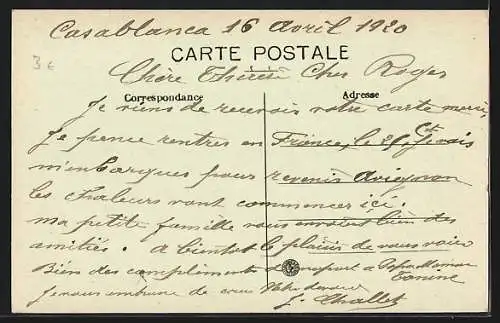 Casablanca 16 Avril 1920
3 €
CARTE POSTALE
Chère Thérèse Cher Roger
Correspondance
Adresse
Je viens de recevoir votre carte merci,
Je pence rentres en France, le 25 Ct Je vais
m'embarques pour revenir
les chaleurs vont commencer ici.
ma petite famille vous envoient bien des
amitiés. a bientot le plaisir de vous voir
Bien des compliments de ma part a Papa Maman
Tonine
Je vous embrasse de
J. Challet